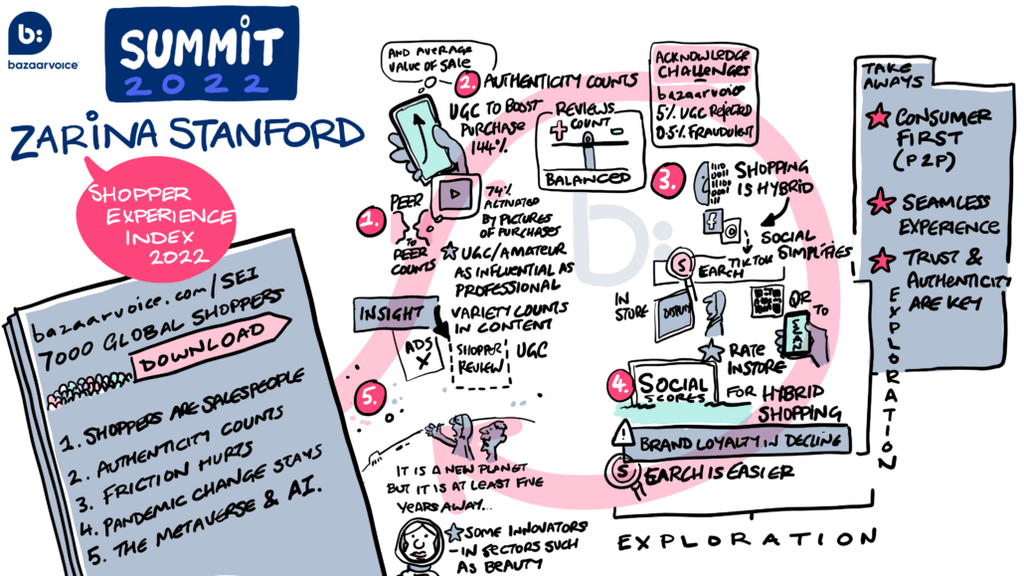 b:
bazaarvoice
SUMMIT
2022
ZARINA STANFORD
SHOPPER
EXPERIENCE
INDEX
2022
bazaarvoice.com/SEI
7000 GLOBAL SHOPPERS
DOWNLOAD
1. SHOPPERS ARE SALESPEOPLE
2. AUTHENTICITY COUNTS
3. FRICTION HURTS
4. PANDEMIC CHANGE STAYS
5. THE METAVERSE & AI.
AND AVERAGE
VALUE OF SALE
2. AUTHENTICITY COUNTS
UGC TO BOOST
PURCHASE
144%
REVIEWS
COUNT
+ -
BALANCED
1.
PEER
TO
PEER
COUNTS
74%
ACTIVATED
BY PICTURES
OF PURCHASES
UGC/AMATEUR
AS INFLUENTIAL AS
PROFESSIONAL
INSIGHT
VARIETY COUNTS
IN CONTENT
ADS
X
SHOPPER
REVIEW
UGC
5.
IT IS A NEW PLANET
BUT IT IS AT LEAST FIVE
YEARS AWAY...
SOME INNOVATORS
- IN SECTORS SUCH
AS BEAUTY
ACKNOWLEDGE
CHALLENGES
bazaarvoice
5% UGC REJECTED
0.5% FRAUDULENT
3.
SHOPPING
IS HYBRID
f
SOCIAL
SIMPLIFIES
TIKTOK
SEARCH
IN
STORE
DISPLAY
QR
TO
RATE
INSTORE
FOR HYBRID
SHOPPING
4. SOCIAL
SCORES
BRAND LOYALTY IN DECLINE
SEARCH IS EASIER
EXPLORATION
b:
TAKE
AWAYS
CONSUMER
FIRST
(P2P)
SEAMLESS
EXPERIENCE
TRUST &
AUTHENTICITY
ARE KEY
EXPLORATION